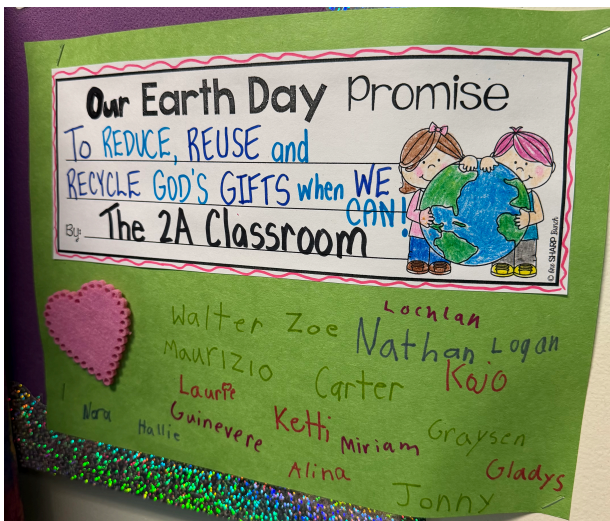 Our Earth Day Promise
To REDUCE, REUSE and
RECYCLE GOD'S GIFTS when WE
CAN!
By: The 2A Classroom
© Bee SHARP Bunch
Lochlan
Walter Zoe Nathan Logan
Maurizio Carter Kojo
Laurie
Nora Hallie Guinevere Ketti Miriam Graysen
Alina Gladys
Jonny